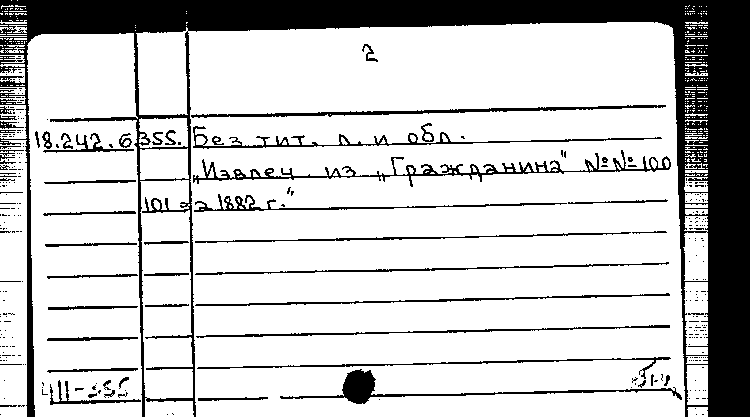 2
18.242.6.355. Без тит. л. и обл.
„Извлеч. из „Гражданина" №№ 100
101 за 1882 г."